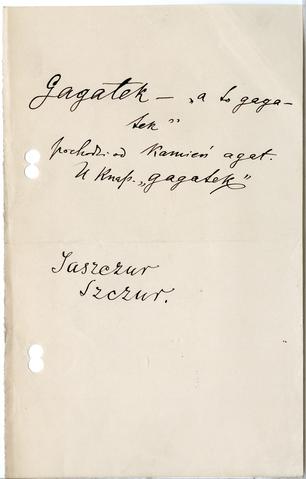 Gagatek – „a to gaga-
tek”
pochodzi od kamień agat.
U Knap. „gagatek”
Jaszczur
Szczur.